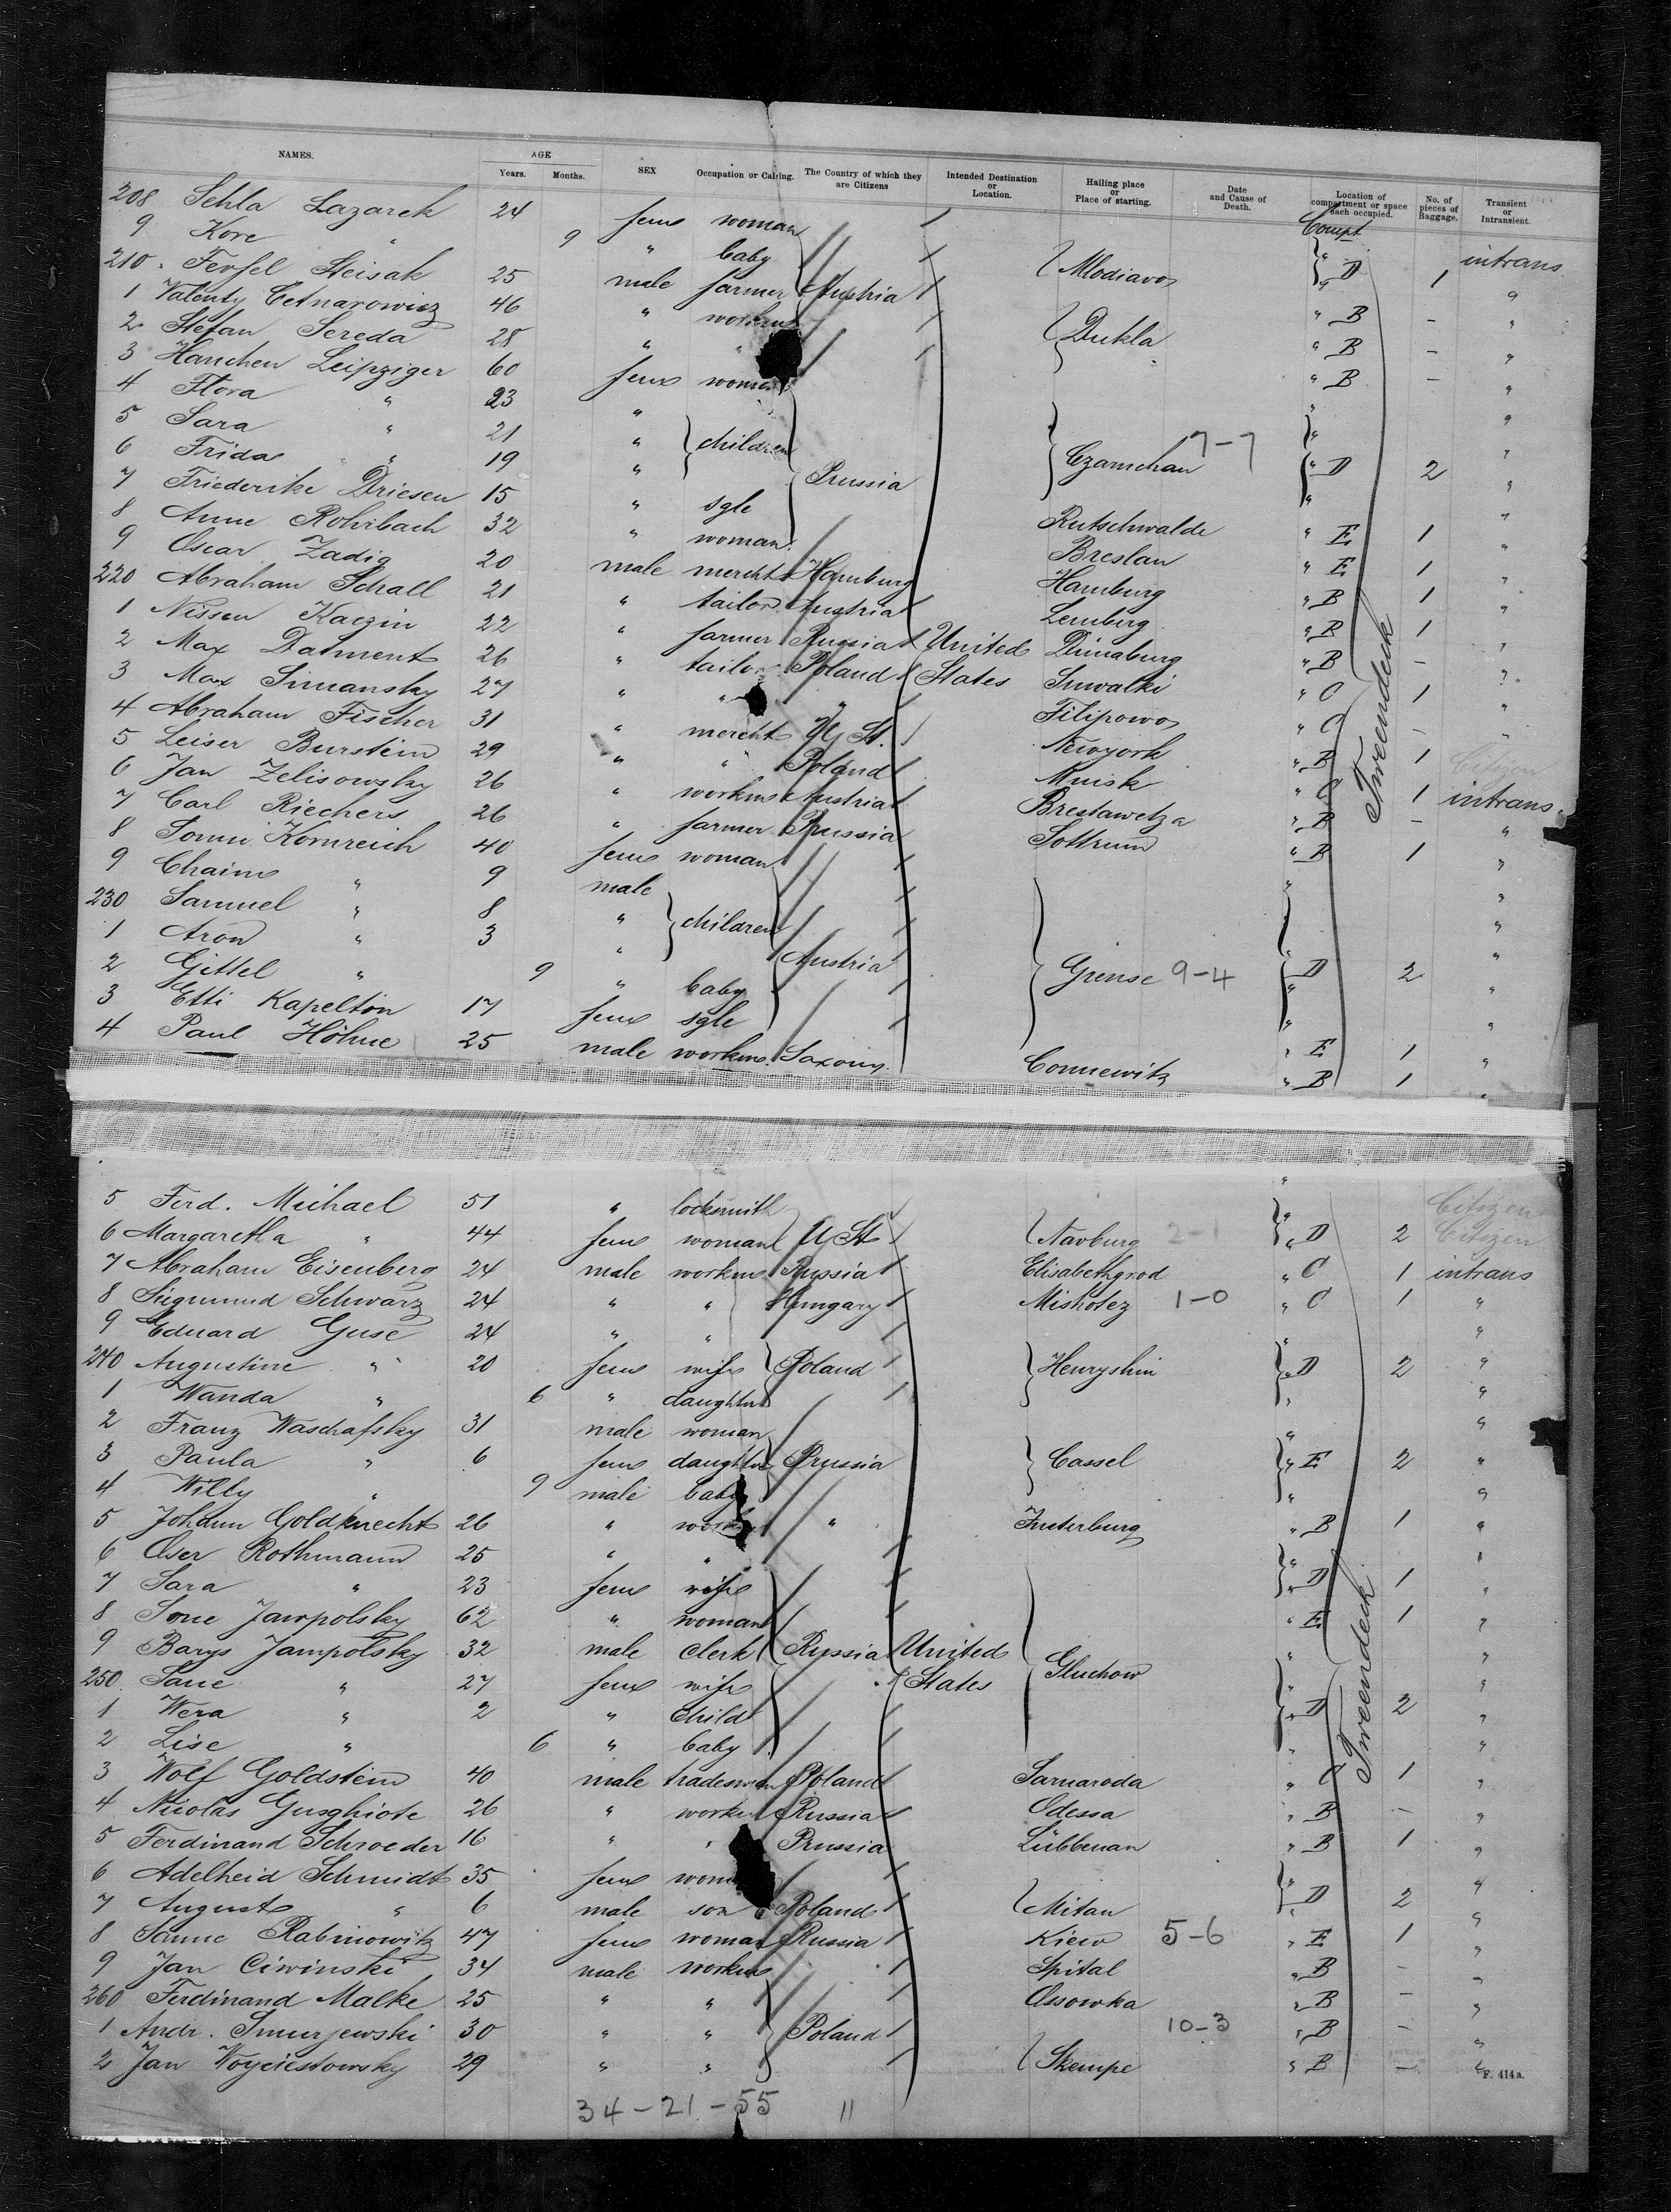 NAMES. AGE Years. Months. SEX Occupation or Calling. The Country of which they are Citizens Intended Destination or Location. Hailing place or Place of starting. Date and Cause of Death. Location of compartment or space each occupied. No. of pieces of Baggage. Transient or Intransient.
208 Sehla Lazarek 24 fem woman Compt
9 Kore " 9 " baby Mlodiavo " D 1 intrans
210 Feyfel Steisak 25 male farmer Austria "
1 Valenty Cetnarowicz 46 " workm Dukla " B - "
2 Stefan Sereda 28 " " " B - "
3 Hanchen Leipziger 60 fem woman " B - "
4 Flora " 23 " "
5 Sara " 21 " children " "
6 Frida " 19 " Prussia Czarnchau 7-7 " D 2 "
7 Friederike Driesen 15 " sgle " "
8 Anne Rohrbach 32 " woman Rutschwalde " E 1 "
9 Oscar Zadig 20 male mercht Hamburg Breslau " E 1 "
220 Abraham Schall 21 " tailor Austria Hamburg " B 1 "
1 Nissen Kaczin 22 " farmer Russia United Lemberg " B 1 "
2 Max Datment 26 " tailor Poland States Dünaburg " B - "
3 Max Simansky 27 " " " Suwalki " C 1 "
4 Abraham Fischer 31 " mercht U St. Filipowo " C - "
5 Leiser Burstein 29 " " Poland Newyork " B 1 Citizen
6 Jan Zelisowsky 26 " workm Austria Minsk " C 1 intrans
7 Carl Riechers 26 " farmer Prussia Brestawetza " B - "
8 Sonni Kornreich 40 fem woman Sottrum " B 1 "
9 Chaim " 9 male " "
230 Samuel " 8 " children "
1 Aron " 3 " Austria " "
2 Gittel " 9 " baby Grense 9-4 D 2 "
3 Etti Kapelton 17 fem sgle " E 1 "
4 Paul Höhne 25 male workm Saxony Connewitz " B 1 "
Tweendeck
5 Ferd. Michael 51 " locksmith " Citizen
6 Margaretha " 44 fem woman U St Navburg 2-1 " D 2 Citizen
7 Abraham Eisenberg 24 male workm Russia Elisabethgrod " C 1 intrans
8 Siegmund Schwarz 24 " " Hungary Miskotez 1-0 " C 1 "
9 Eduard Guse 24 " " " "
240 Augustine " 20 fem wife Poland Henryshin " D 2 "
1 Wanda " 6 " daughter " "
2 Franz Waschafsky 31 male woman " "
3 Paula " 6 fem daughter Prussia Cassel " E 2 "
4 Willy " 9 male baby " "
5 Johann Goldknecht 26 " workm " Insterburg " B 1 "
6 Oser Rothmann 25 " " " "
7 Sara " 23 fem wife " D 1 "
8 Sone Jampolsky 62 " woman " E 1 "
9 Barys Jampolsky 32 male clerk Russia United " "
250 Sane " 27 fem wife States Gluchow " "
1 Wera " 2 " child " D 2 "
2 Lise " 6 " baby " "
3 Wolf Goldstein 40 male tradesman Poland Sarnaroda " C 1 "
4 Nicolas Gusghiote 26 " workm Russia Odessa " B - "
5 Ferdinand Schroeder 16 " " Prussia Lübbenau " B 1 "
6 Adelheid Schmidt 35 fem woman " "
7 August " 6 male son Poland Mitau D 2 "
8 Sanne Rabinowitz 47 fem woman Russia Kiew 5-6 " E 1 "
9 Jan Ciwinski 34 male workm Spital " B - "
260 Ferdinand Malke 25 " " Ossowka " B - "
1 Andr. Smurjewski 30 " " Poland 10-3 " B - "
2 Jan Woyciestowsky 29 " " Skempe " B - "
Tweendeck
F. 414a.
34-21-55 11